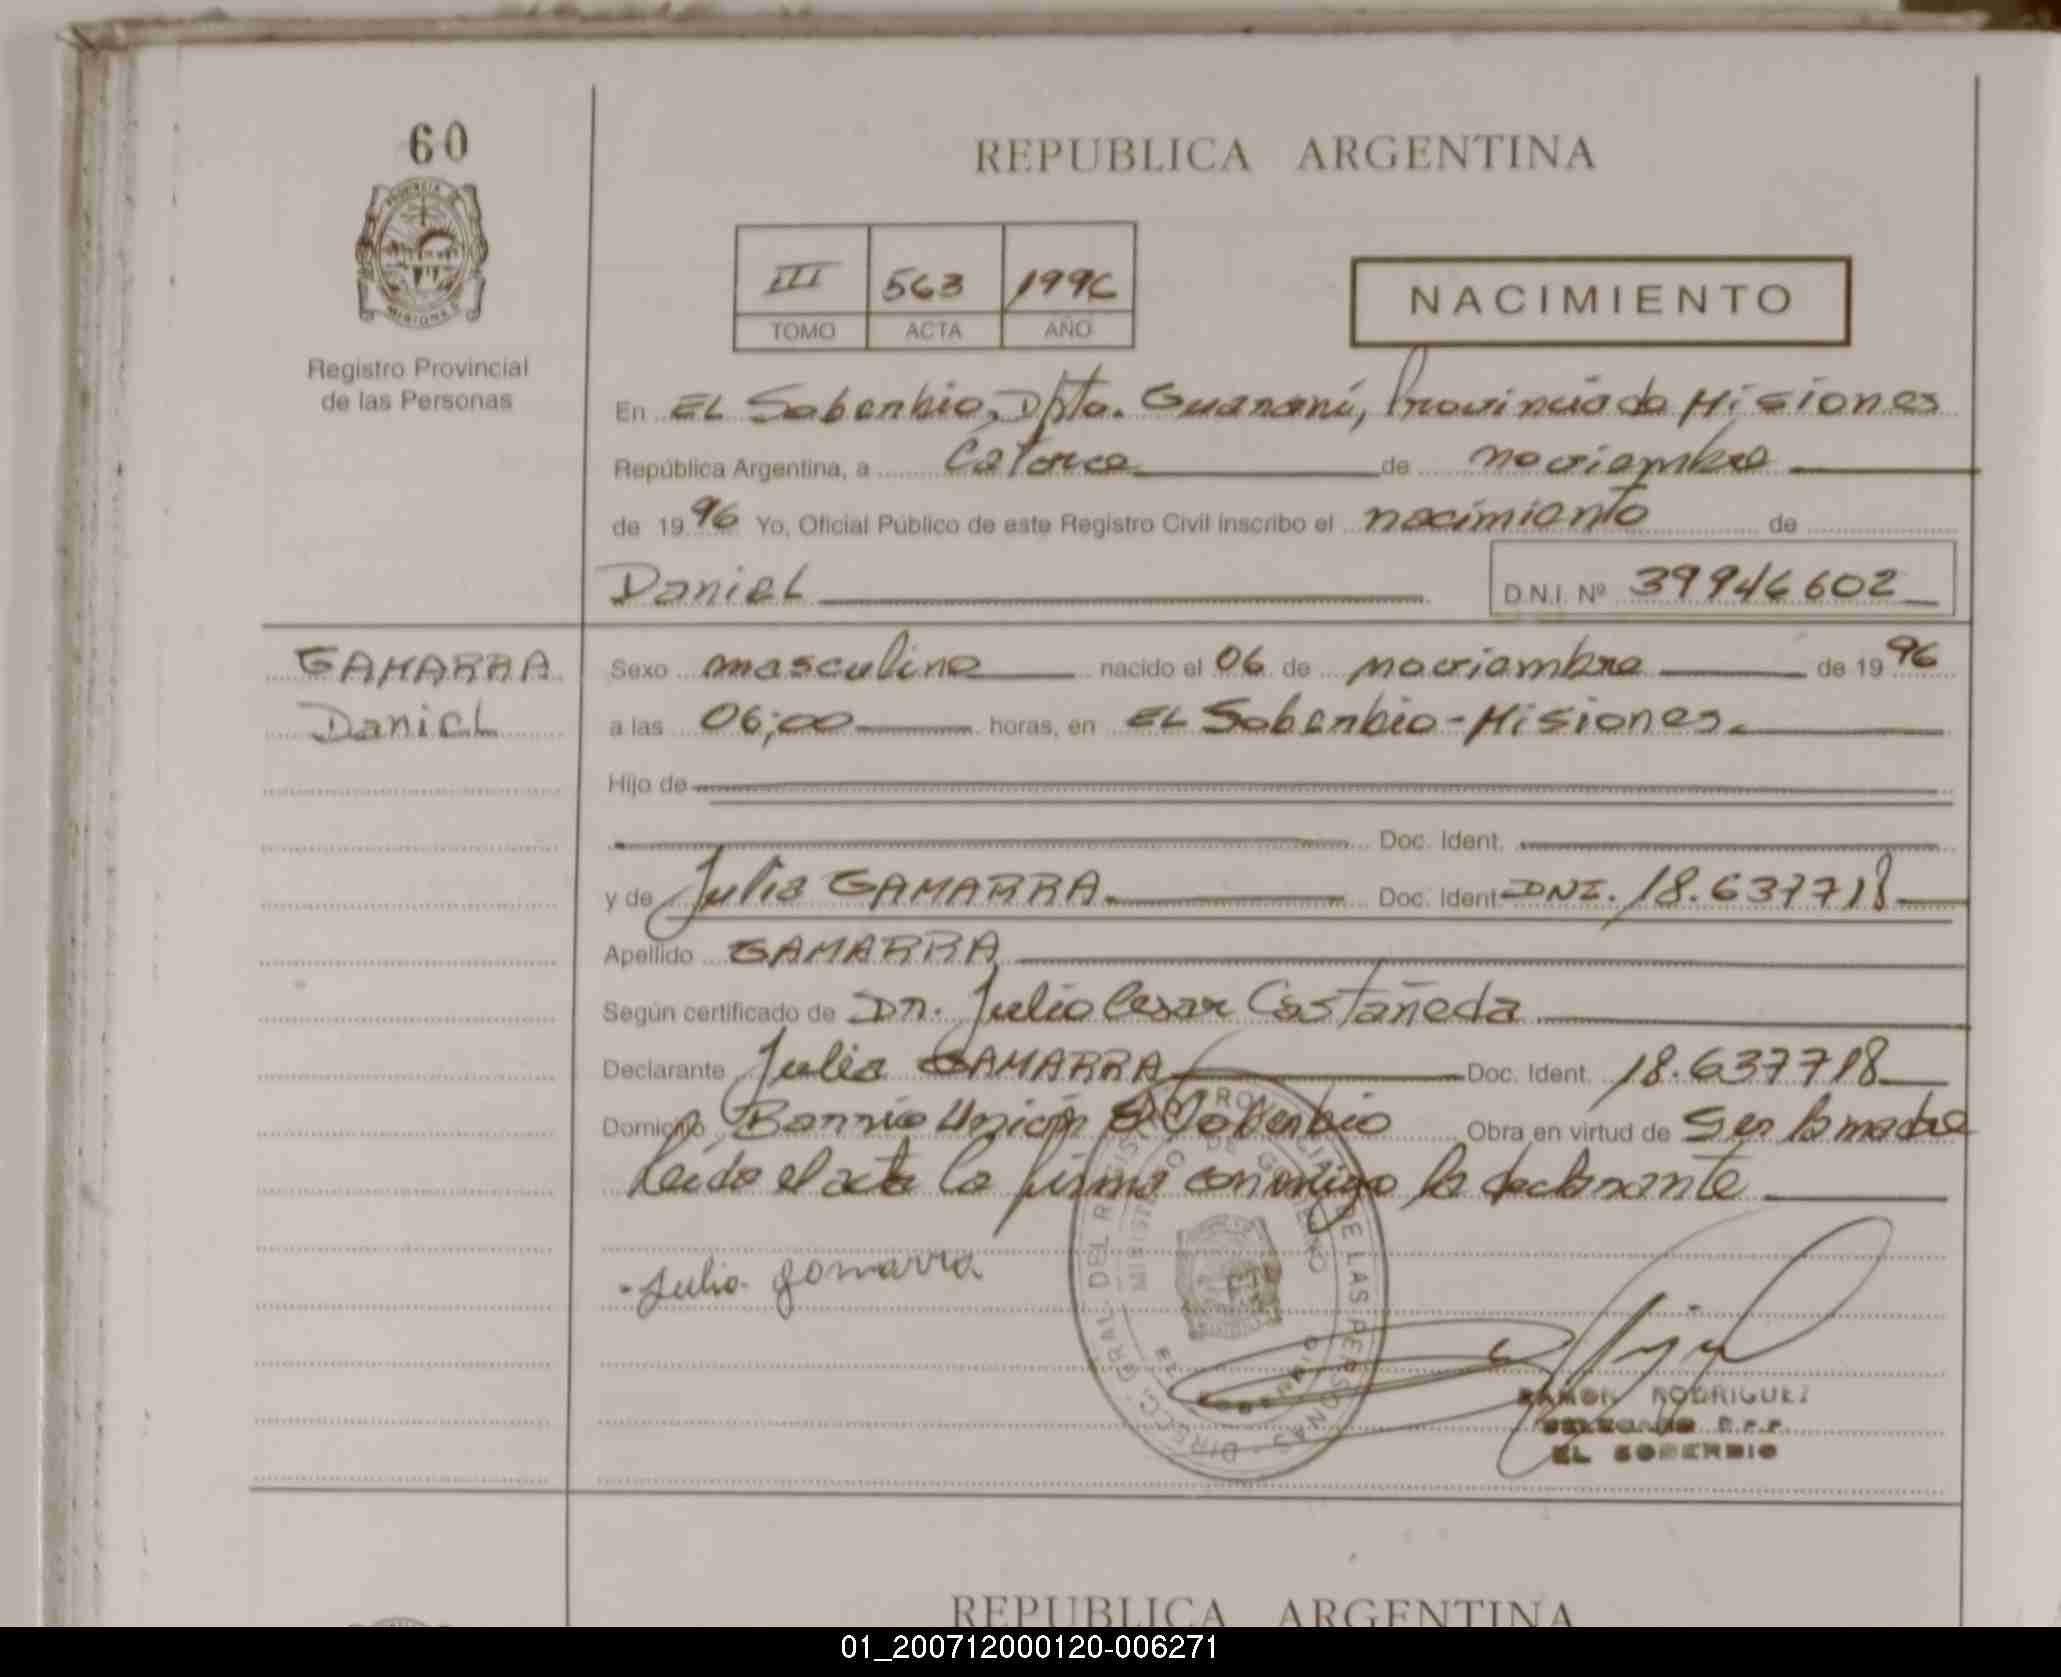 60
REPUBLICA ARGENTINA
III 563 1996
TOMO ACTA AÑO
NACIMIENTO
Registro Provincial
de las Personas
En EL Soberbio, Dpto. Guaraní, Provincia de Misiones
República Argentina, a Catorce de noviembre
de 1996 Yo, Oficial Público de este Registro Civil inscribo el nacimiento de
Daniel D.N.I. Nº 39946602
GAMARRA
Daniel
Sexo masculino nacido el 06 de noviembre de 1996
a las 06;00 horas, en EL Soberbio-Misiones.
Hijo de
Doc. Ident.
y de Julia GAMARRA Doc. Ident. DNI. 18.637718
Apellido GAMARRA
Según certificado de Dr. Julio Cesar Castañeda
Declarante Julia GAMARRA Doc. Ident. 18.637718
Domicilio Barrio Unión El Soberbio Obra en virtud de Ser la madre
Leída el acta la firma conmigo la declarante
Julia gamarra
RAMON RODRIGUEZ
DELEGADO R.P.P.
EL SOBERBIO
REPUBLICA ARGENTINA
01_200712000120-006271